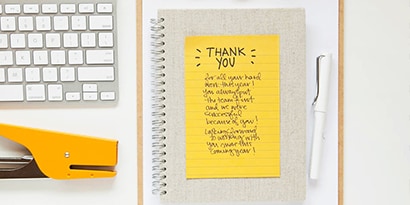 THANK
YOU
for all your hard
work this year!
you always put
the team first
and we were
successful
because of you!
Looking forward
to working with
you more this
coming year!